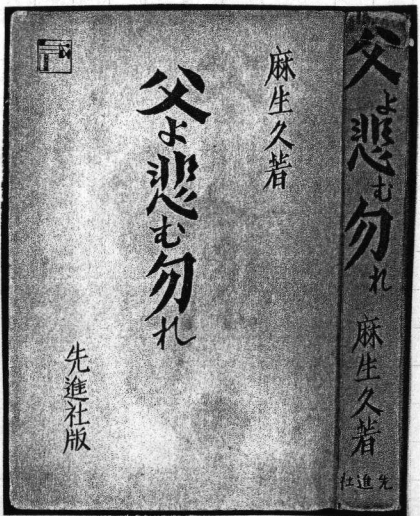 麻生久著
父よ悲む勿れ
先進社版
父よ悲む勿れ
麻生久著
先進社